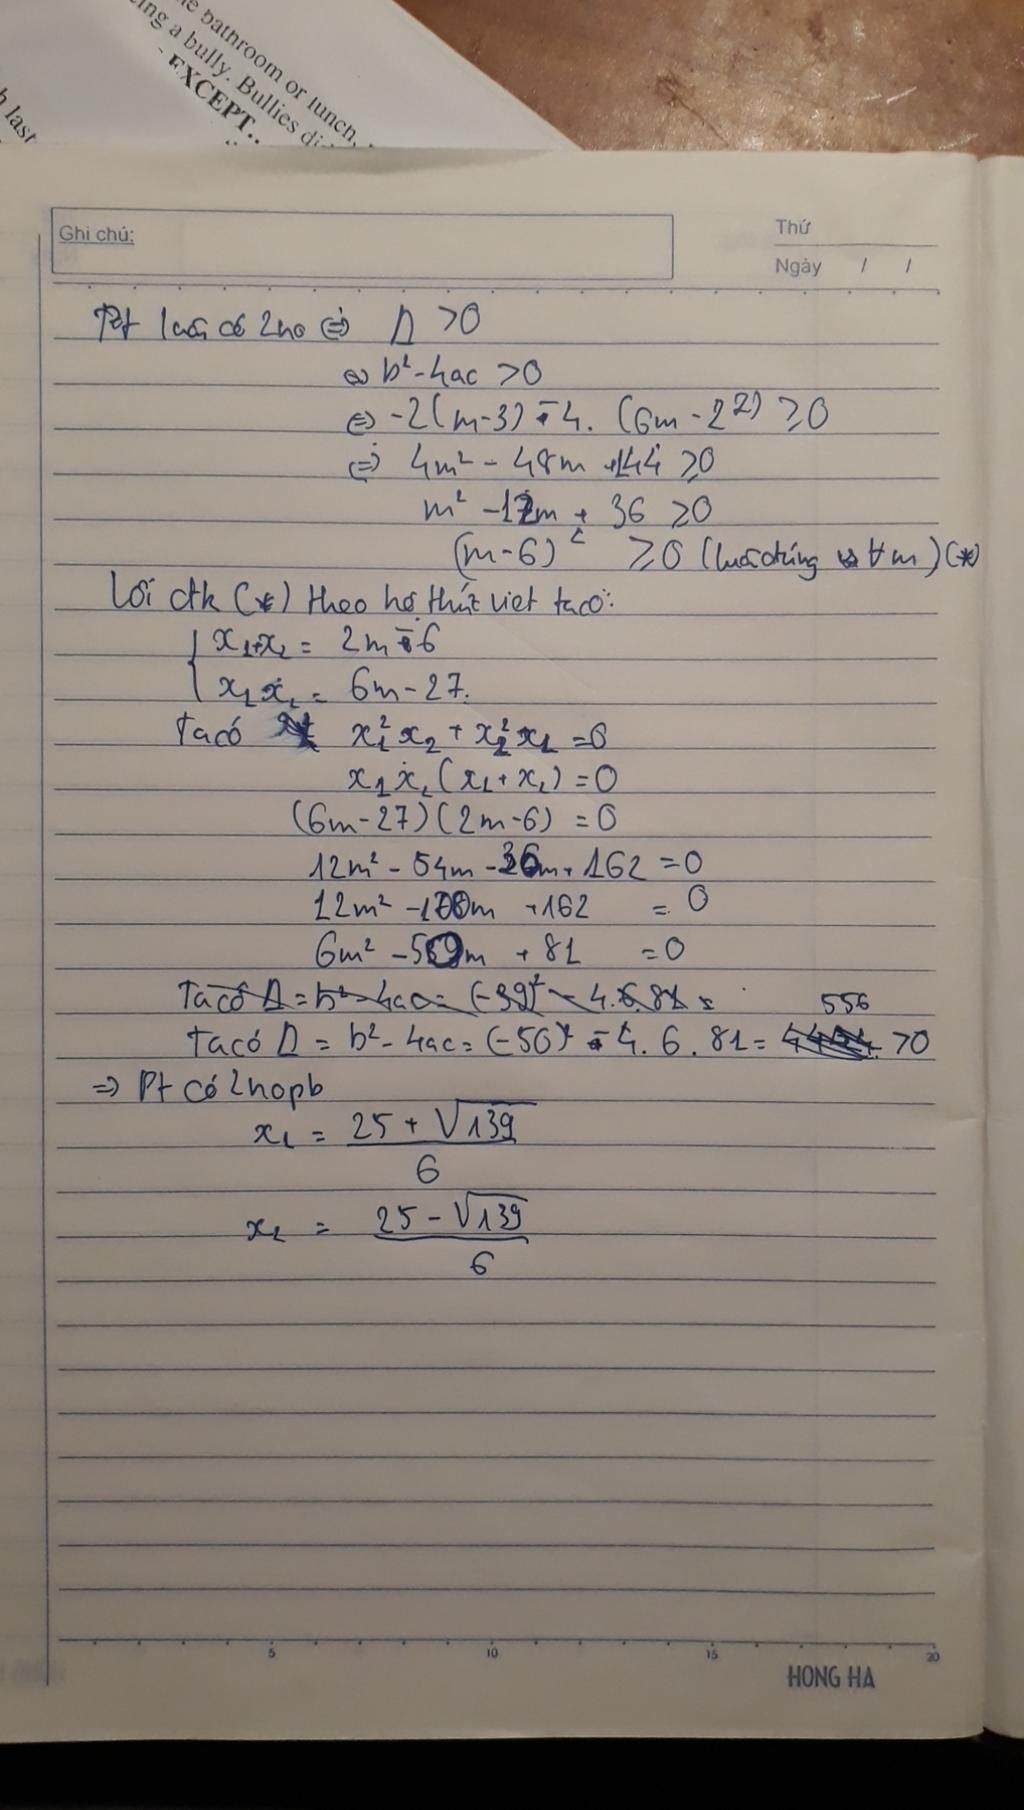 he bathroom or lunch,
ing a bully. Bullies di
- EXCEPT..
h last
Ghi chú:
Thứ
Ngày / /
Pt luôn có 2 no ⇔ Δ >0
⇔ b² - 4ac >0
⇔ -2(m-3) - 4. (6m - 27) ≥0
⇔ 4m² - 48m + 144 ≥0
m² - 12m + 36 ≥0
(m-6)² ≥0 (luôn đúng ∀m) (*)
Với đk (*) theo hệ thức viet ta có:
x₁+x₂ = 2m - 6
x₁x₂ = 6m - 27.
Ta có x₁²x₂ + x₂²x₁ =0
x₁x₂(x₁+x₂) =0
(6m-27)(2m-6) =0
12m² - 54m - 36m + 162 =0
12m² - 100m +162 = 0
6m² - 50m + 81 =0
Ta có Δ = b² - 4ac = (-39)² - 4.6.81 =
556
Ta có Δ = b² - 4ac = (-50)² - 4. 6. 81 = >0
⇒ Pt có 2 no pb
x₁ = 25 + √139 / 6
x₂ = 25 - √139 / 6
5 10 15 20
HONG HA